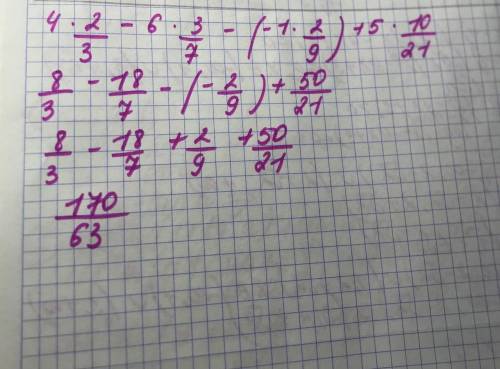 4 · 2/3 - 6 · 3/7 - (-1 · 2/9) + 5 · 10/21
8/3 - 18/7 - (-2/9) + 50/21
8/3 - 18/7 + 2/9 + 50/21
170/63